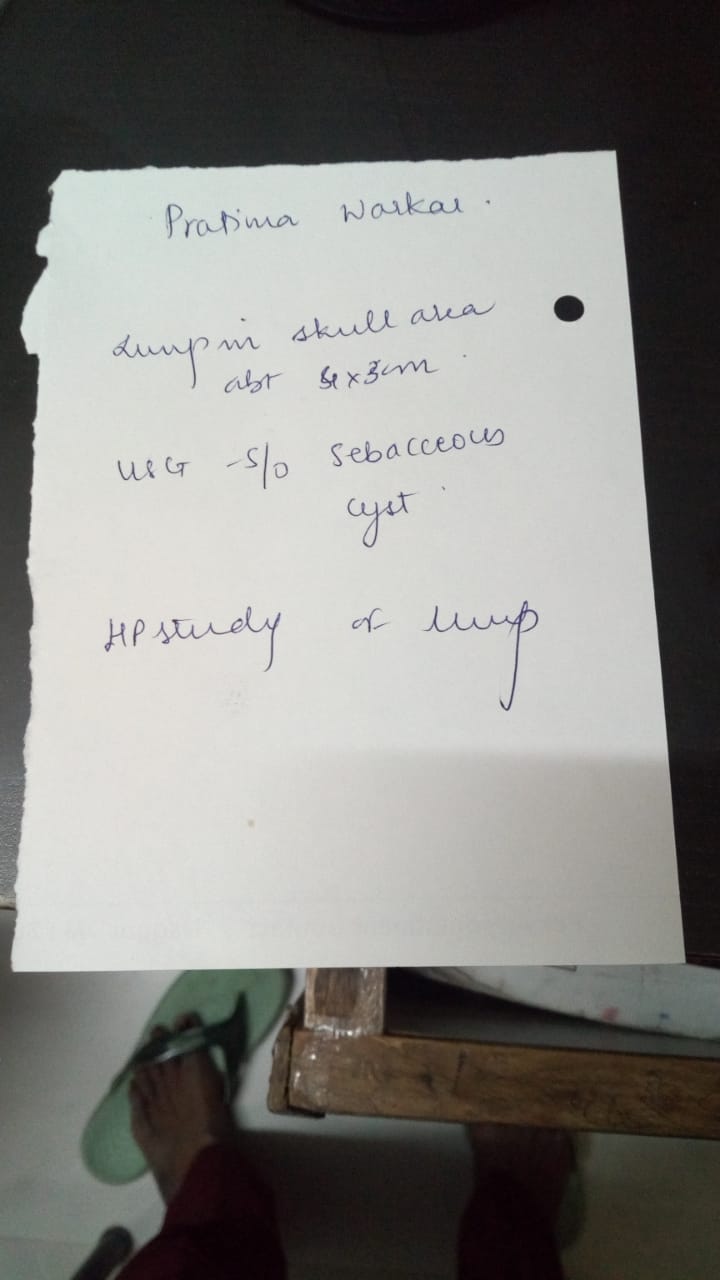 Pratima Warkar.
Lump in skull area
abt 4x3cm.
USG - S/o Sebacceous
cyst.
HP study of lump